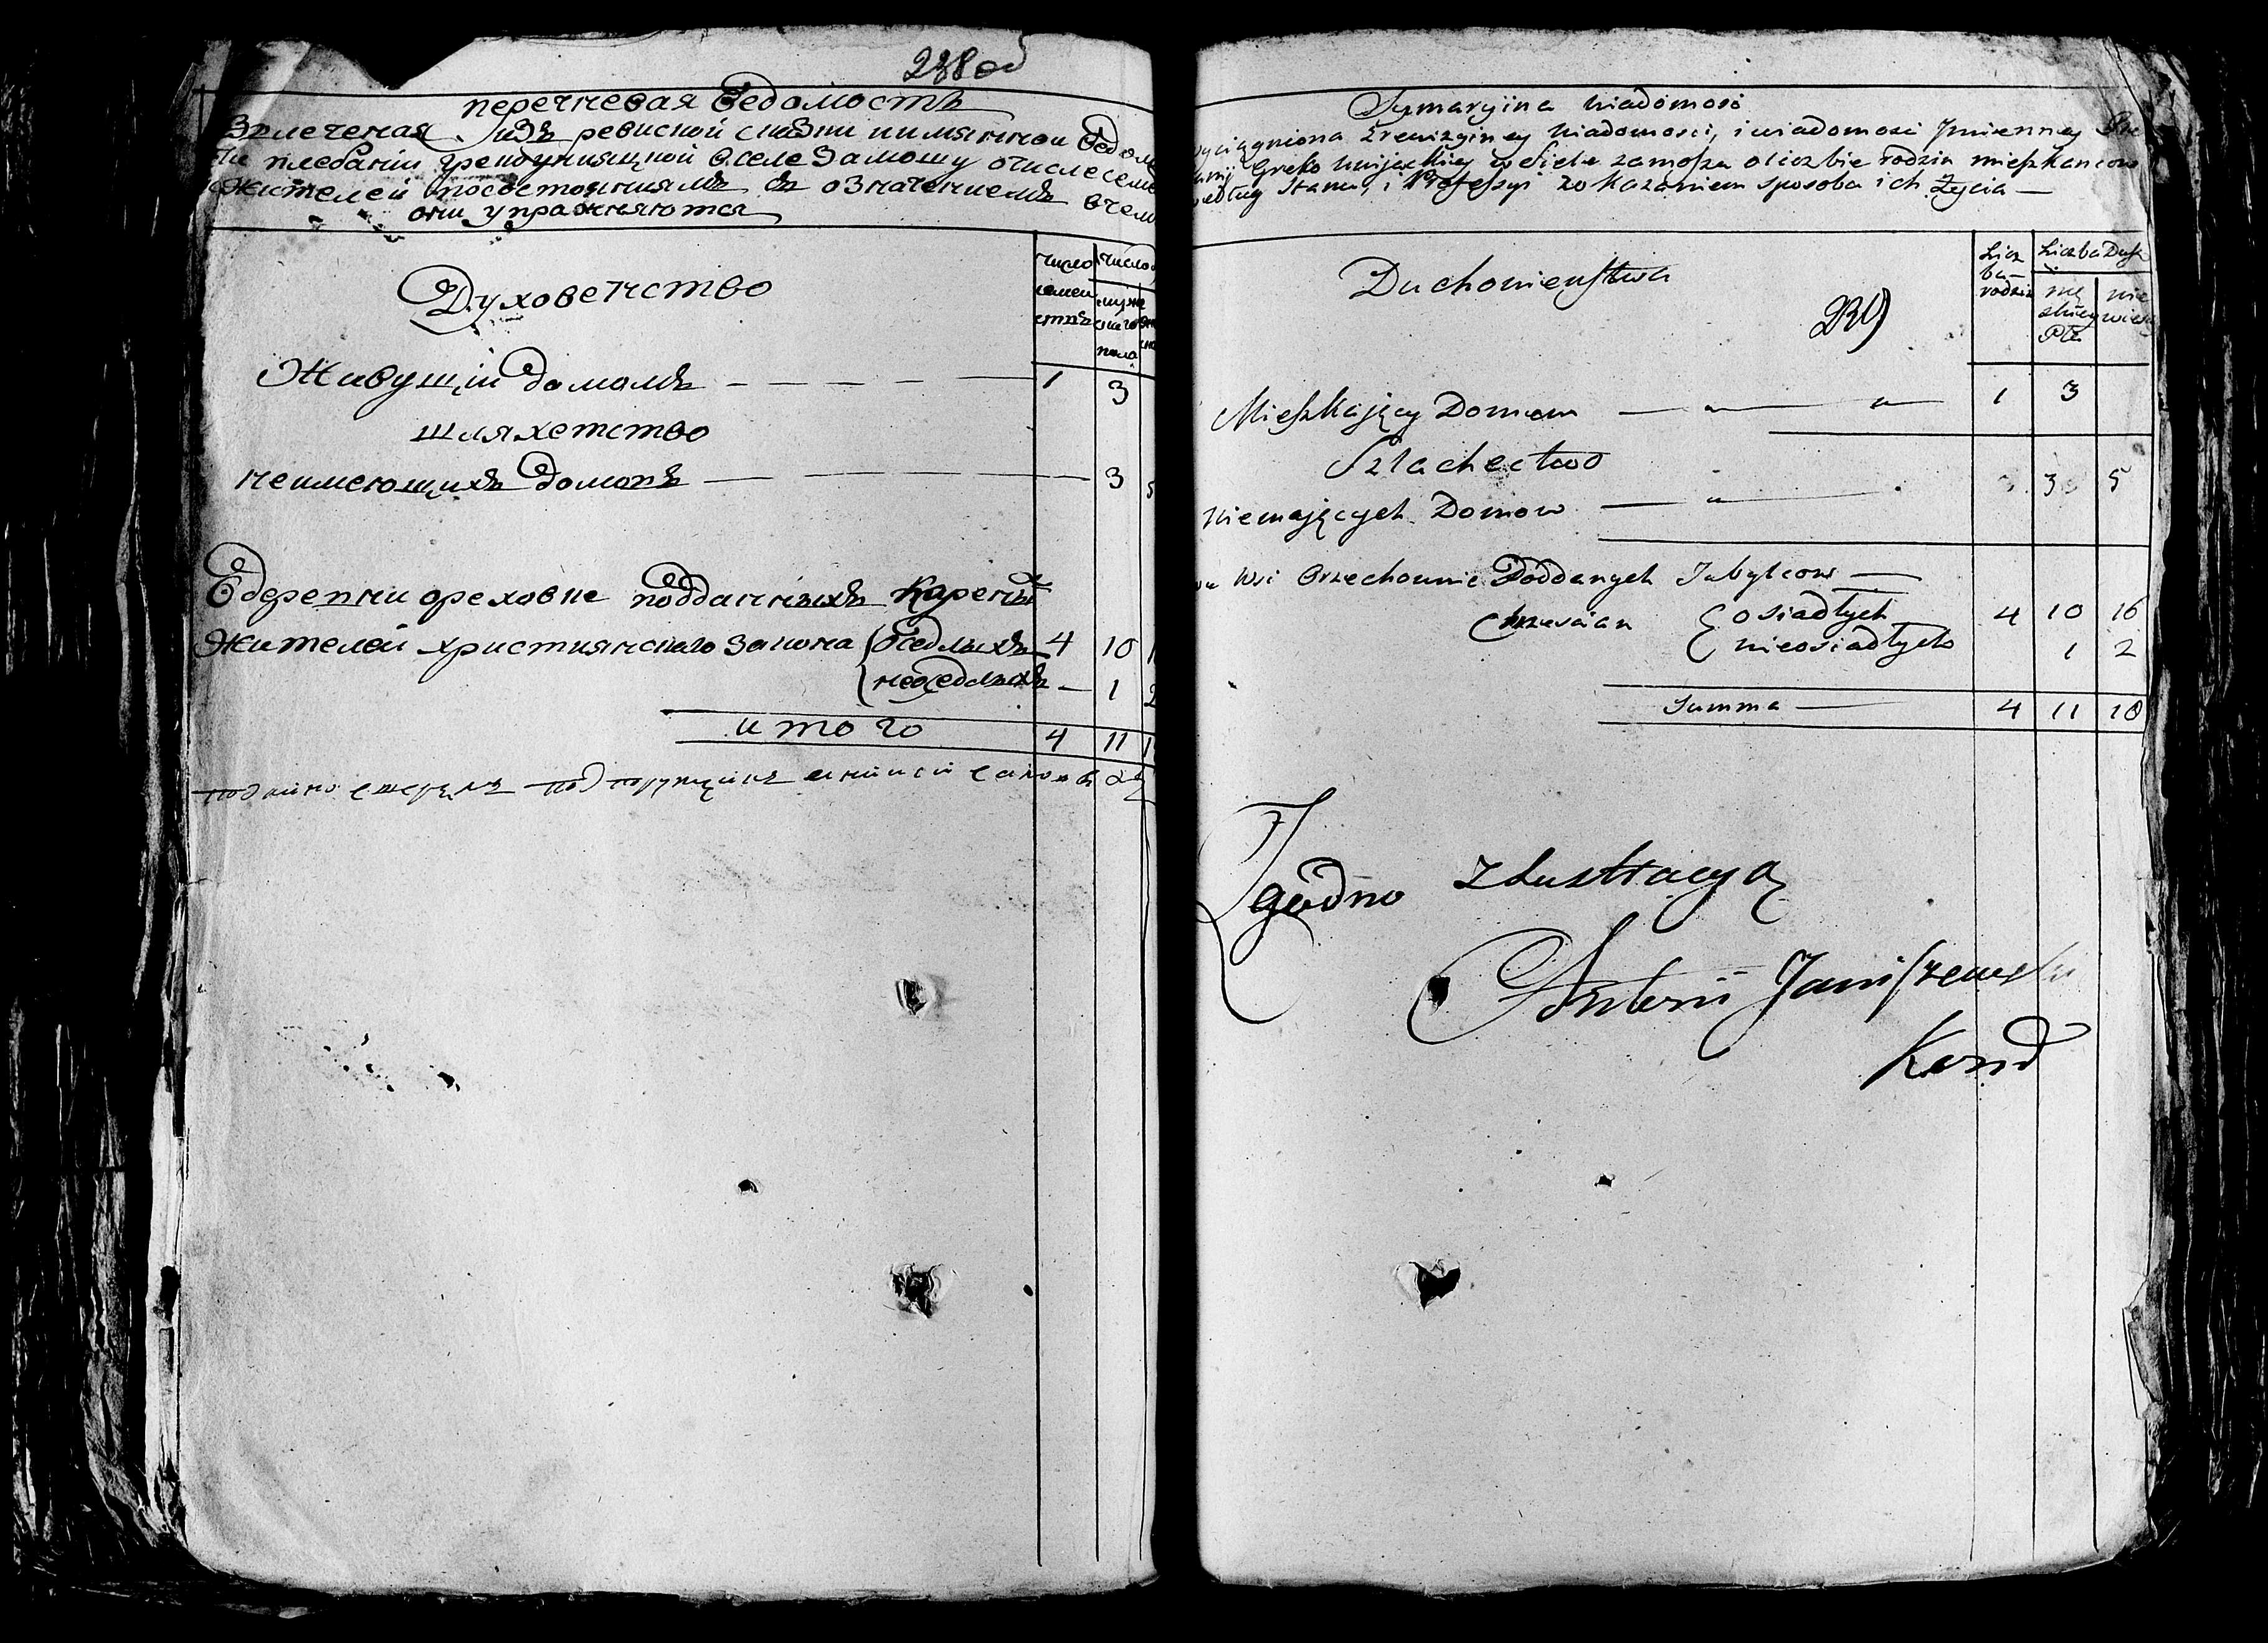 238 об
перечневая Ведомость
Взлеченая изъ ревиской сказки имянной Ведомо
плебании грекоунияцкой вселе Замошу очислесеме
Жителей посостояниямъ съ означениемъ вчем
они упражняются
число
семей
ствъ
число
муже
скаго
пола
Духовенство
Живущіи домомъ — — — — 1 3
шляхетство
неимеющихъ домовъ — — 3 5
Вдеревни ореховне подданныхъ Кореных
Жителей християнскаго закона оседлыхъ 4 10 1
неоседлыхъ — 1 2
итого 4 11 1
Sumaryina wiadomość
wyciągniona z rewizyiney wiadomości, i wiadomości Jmienney Ple
banij Greko Unijackiey w Siele zamosza o liczbie rodzin mieszkancow
według Stanu, i Professyi z okazaniem sposoba ich Życia —
Duchowieństwa
239
Licz
ba
rodzin
Liczba Dusz
mę
skiey
Płci
nie
wies
Mieszkający Domem — „ — „ — 1 3
Szlachectwo
niemających Domow — „ — 3 5
we Wsi Orzechownie Poddanych Tubylcow —
Chrzescian osiadłych 4 10 16
nieosiadłych 1 2
Summa — 4 11 18
Zgodno z Lustracyą
Antoni Janiszewski